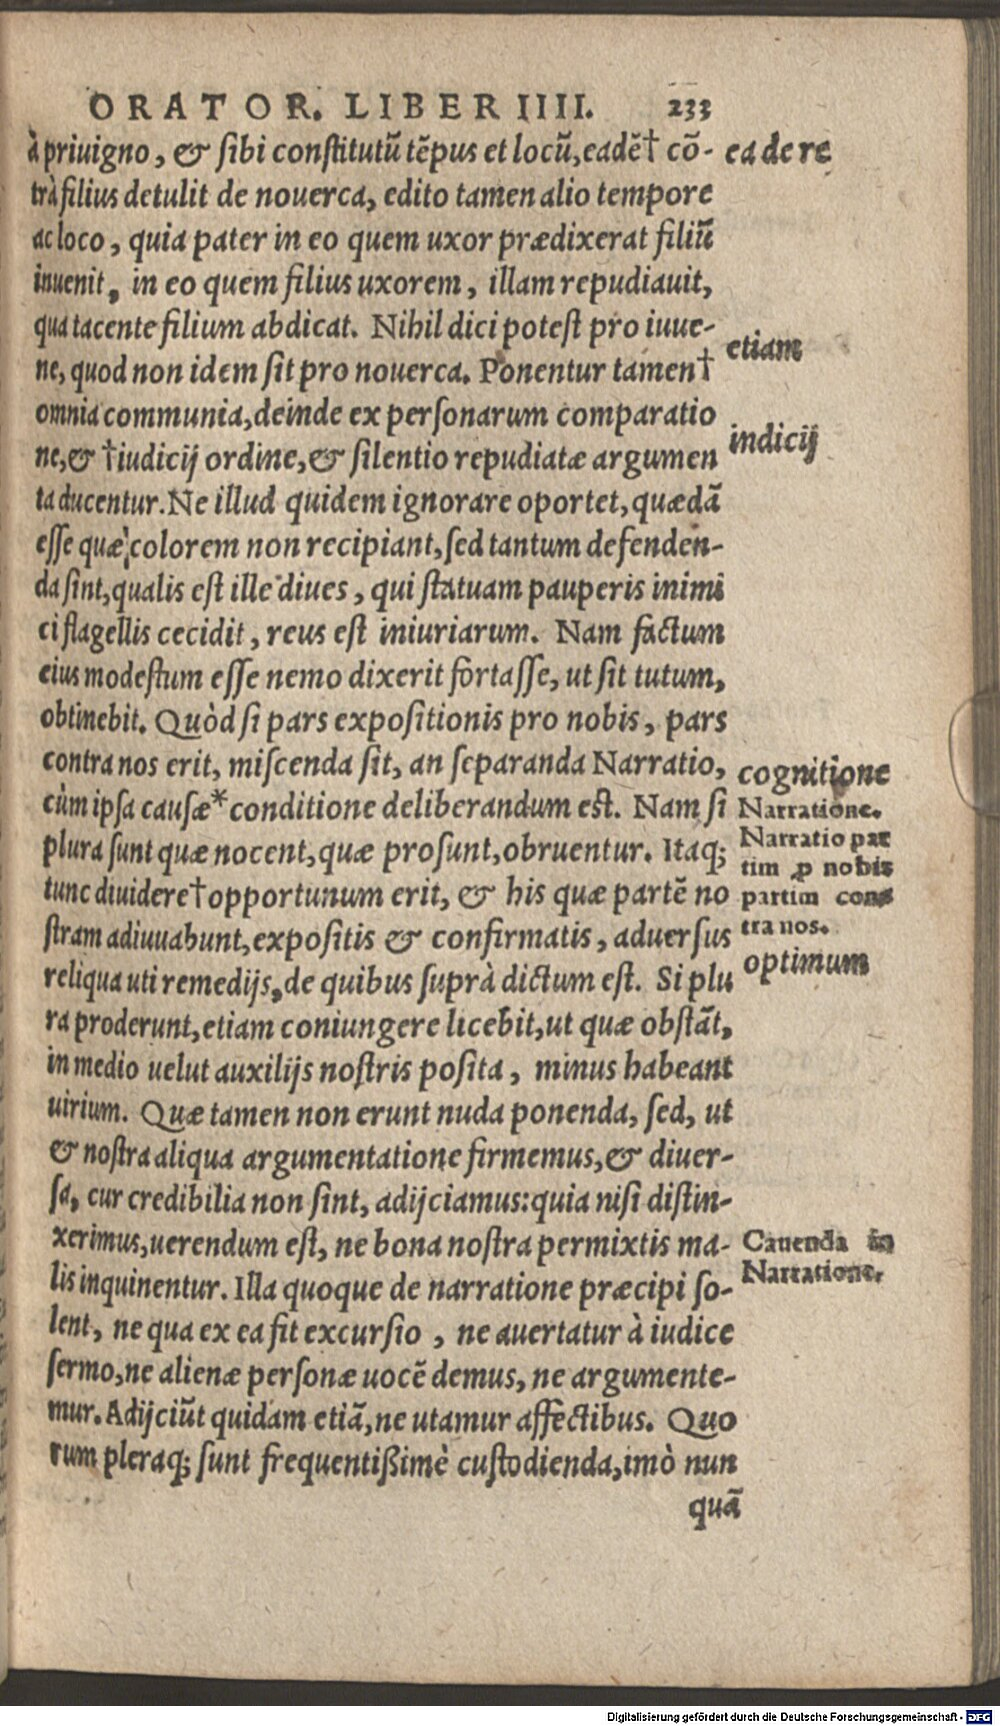 ORATOR. LIBER IIII. 233
à priuigno, & sibi constitutũ tẽpus et locũ, eadẽ† cõ-
trà filius detulit de nouerca, edito tamen alio tempore
ac loco, quia pater in eo quem uxor prædixerat filiũ
inuenit, in eo quem filius uxorem, illam repudiauit,
qua tacente filium abdicat. Nihil dici potest pro iuue-
ne, quod non idem sit pro nouerca. Ponentur tamen†
omnia communia, deinde ex personarum comparatio
ne, & †iudicij ordine, & silentio repudiatæ argumen
ta ducentur. Ne illud quidem ignorare oportet, quædã
esse quæ colorem non recipiant, sed tantum defenden-
da sint, qualis est ille diues, qui statuam pauperis inimi
ci flagellis cecidit, reus est iniuriarum. Nam factum
eius modestum esse nemo dixerit fortasse, ut sit tutum,
obtinebit. Quòd si pars expositionis pro nobis, pars
contra nos erit, miscenda sit, an separanda Narratio,
cùm ipsa causæ* conditione deliberandum est. Nam si
plura sunt quæ nocent, quæ prosunt, obruentur. Itaq;
tunc diuidere† opportunum erit, & his quæ partẽ no
stram adiuuabunt, expositis & confirmatis, aduersus
reliqua uti remedijs, de quibus suprà dictum est. Si plu
ra proderunt, etiam coniungere licebit, ut quæ obstãt,
in medio uelut auxilijs nostris posita, minus habeant
uirium. Quæ tamen non erunt nuda ponenda, sed, ut
& nostra aliqua argumentatione firmemus, & diuer-
sa, cur credibilia non sint, adijciamus: quia nisi distin-
xerimus, uerendum est, ne bona nostra permixtis ma-
lis inquinentur. Illa quoque de narratione præcipi so-
lent, ne qua ex ea fit excursio, ne auertatur à iudice
sermo, ne alienæ personæ uocẽ demus, ne argumente-
mur. Adijciũt quidam etiã, ne utamur affectibus. Quo
rum pleraq; sunt frequentißimè custodienda, imò nun
quã
ea de re
etiam
indicij
cognitione
Narratione.
Narratio par
tim ꝓ nobis
partim cont
tra nos.
optimum
Cauenda in
Narratione.
Digitalisierung gefördert durch die Deutsche Forschungsgemeinschaft - DFG